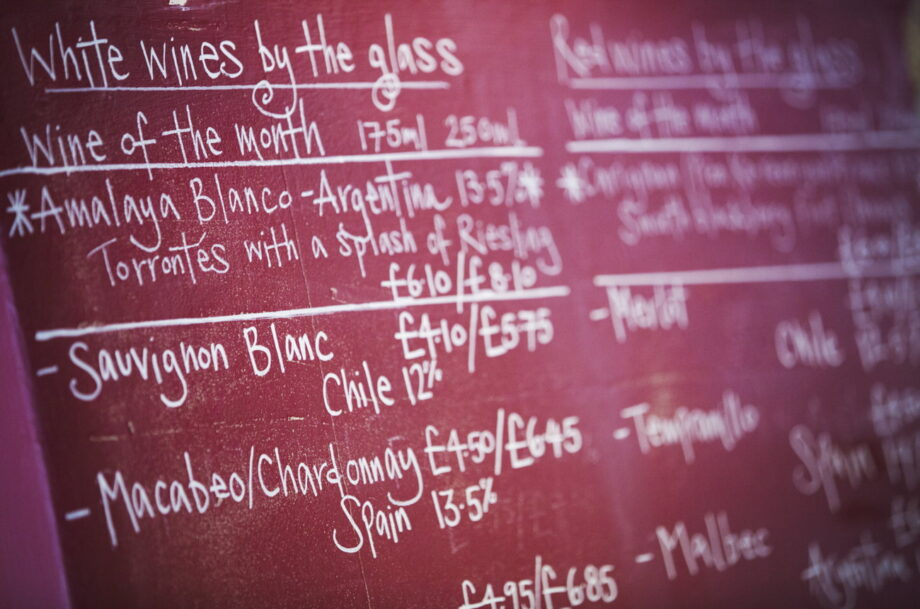 White wines by the glass
Wine of the month 175ml 250ml
*Amalaya Blanco - Argentina 13.5%*
Torrontés with a splash of Riesling
£6.10/£8.10
- Sauvignon Blanc £4.10/£5.75
Chile 12%
- Macabeo/Chardonnay £4.50/£6.45
Spain 13.5%
£4.95/£6.85
Red wines by the glass
Wine of the month
- Merlot
Chile
- Tempranillo
Spain
- Malbec
Argentina